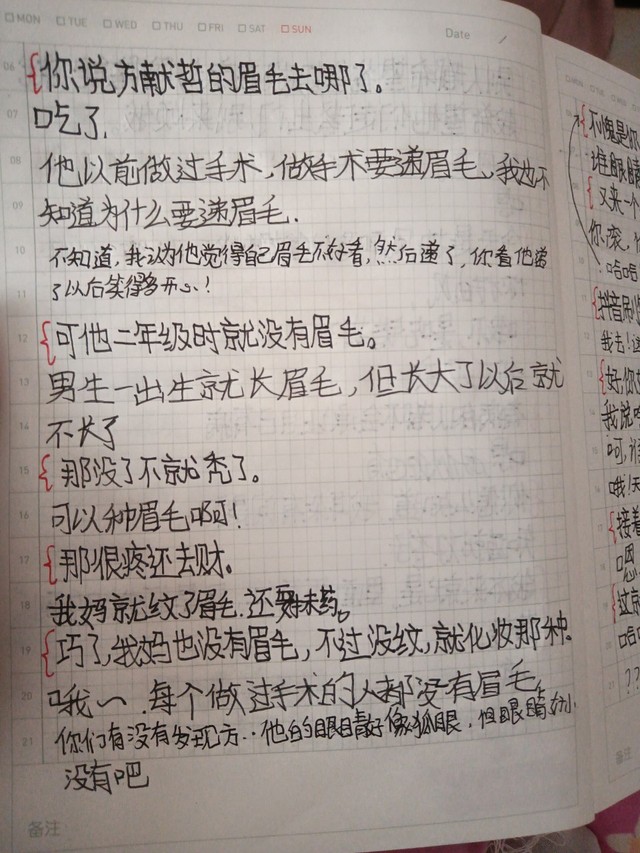 MON TUE WED THU FRI SAT SUN
Date /
06 你说方献哲的眉毛去哪了。
07 吃了.
08 他以前做过手术,做手术要递眉毛、我也不
09 知道为什么要递眉毛.
10 不知道,我认为他觉得自己眉毛不好看,然后递了,你看他递
11 了以后笑得多开心!
12 可他二年级时就没有眉毛。
13 男生一出生就长眉毛,但长大了以后就
14 不长了
15 那没了不就秃了。
16 可以种眉毛啊!
17 那很疼还去财。
18 我妈就纹了眉毛.还要抹药。
19 巧了,我妈也没有眉毛,不过没纹,就化妆那种.
20 哦~.每个做过手术的人都没有眉毛
21 你们有没有发现方..他的眼睛好像狐眼,但眼睛好小
没有吧
备注
不愧是你
谁眼睛
又来一个
你滚,
哈哈
抖音刷
我去!这
好,你
我说
呵,
哦!天
接着
嗯
过京
哈
??
备注